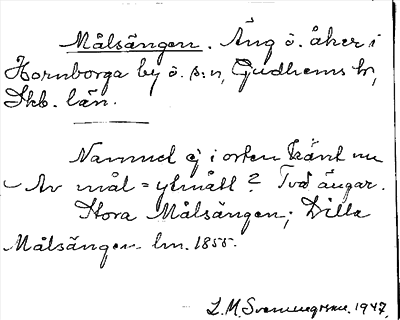 Målsängen. Äng o. åker i
Hornborga by o. s:n, Gudhems hd,
Skb. län.
Namnet ej i orten känt nu
Av mål = ytmått? Två ängar.
Stora Målsängen; Lilla
Målsängen lm. 1855.
L. M. Svenungsson. 1947.